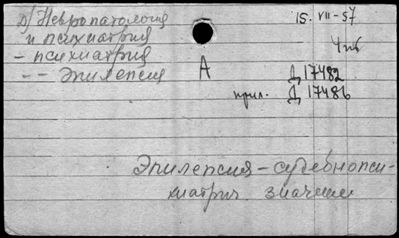 Д) Невропатология
и психиатрия
– психиатрия
– – Эпилепсия
15. VII - 57
А
Д 17482
прил. Д 17486
Эпилепсия – судебнопси-
хиатрич. значение